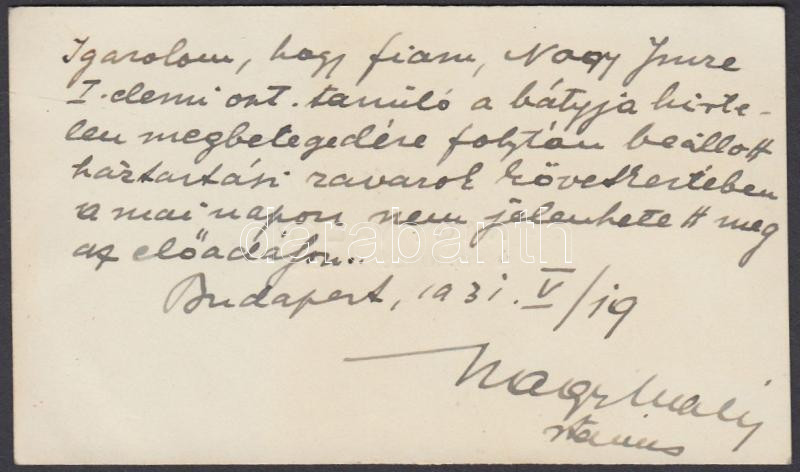 Igazolom, hogy fiam, Nagy Imre
I. elemi oszt. tanuló a bátyja hirte-
len megbetegedése folytán beállott
háztartási zavarok következtében
a mai napon nem jelenhetett meg
az előadáson.
Budapest, 1931. V/19
Nagy Mihály
darabanth